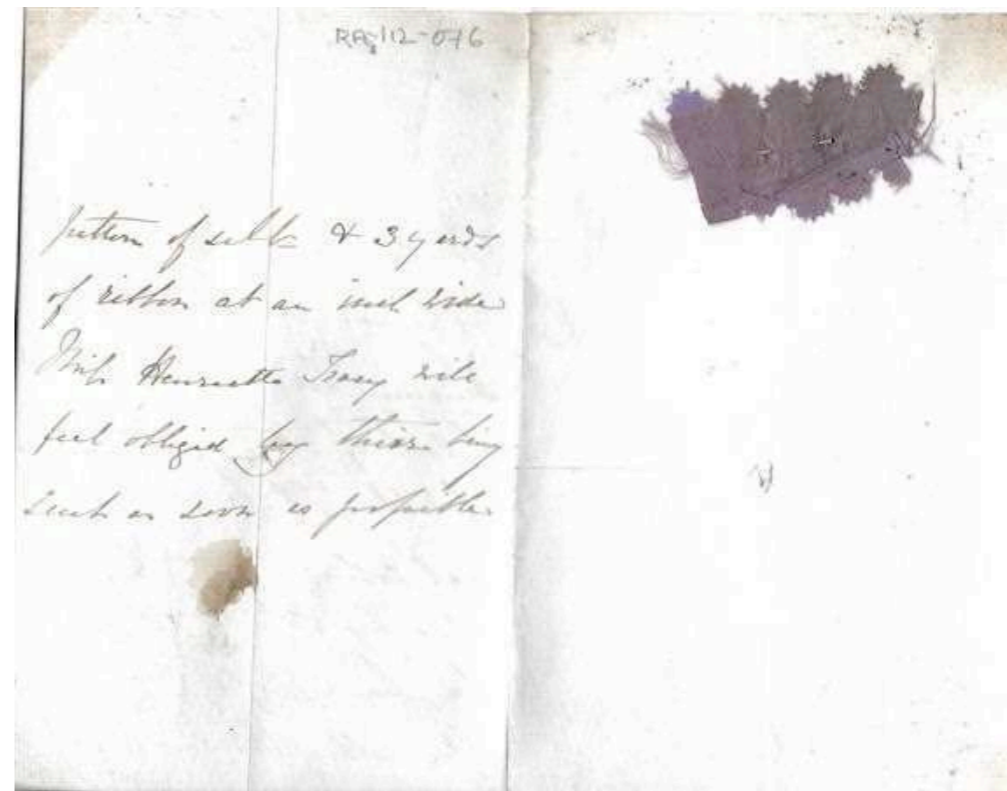 RA3/12-076
pattern of silk & 3 yards
of ribbon at an inch wide
Miss Henrietta Tracy will
feel obliged by their being
sent as soon as possible